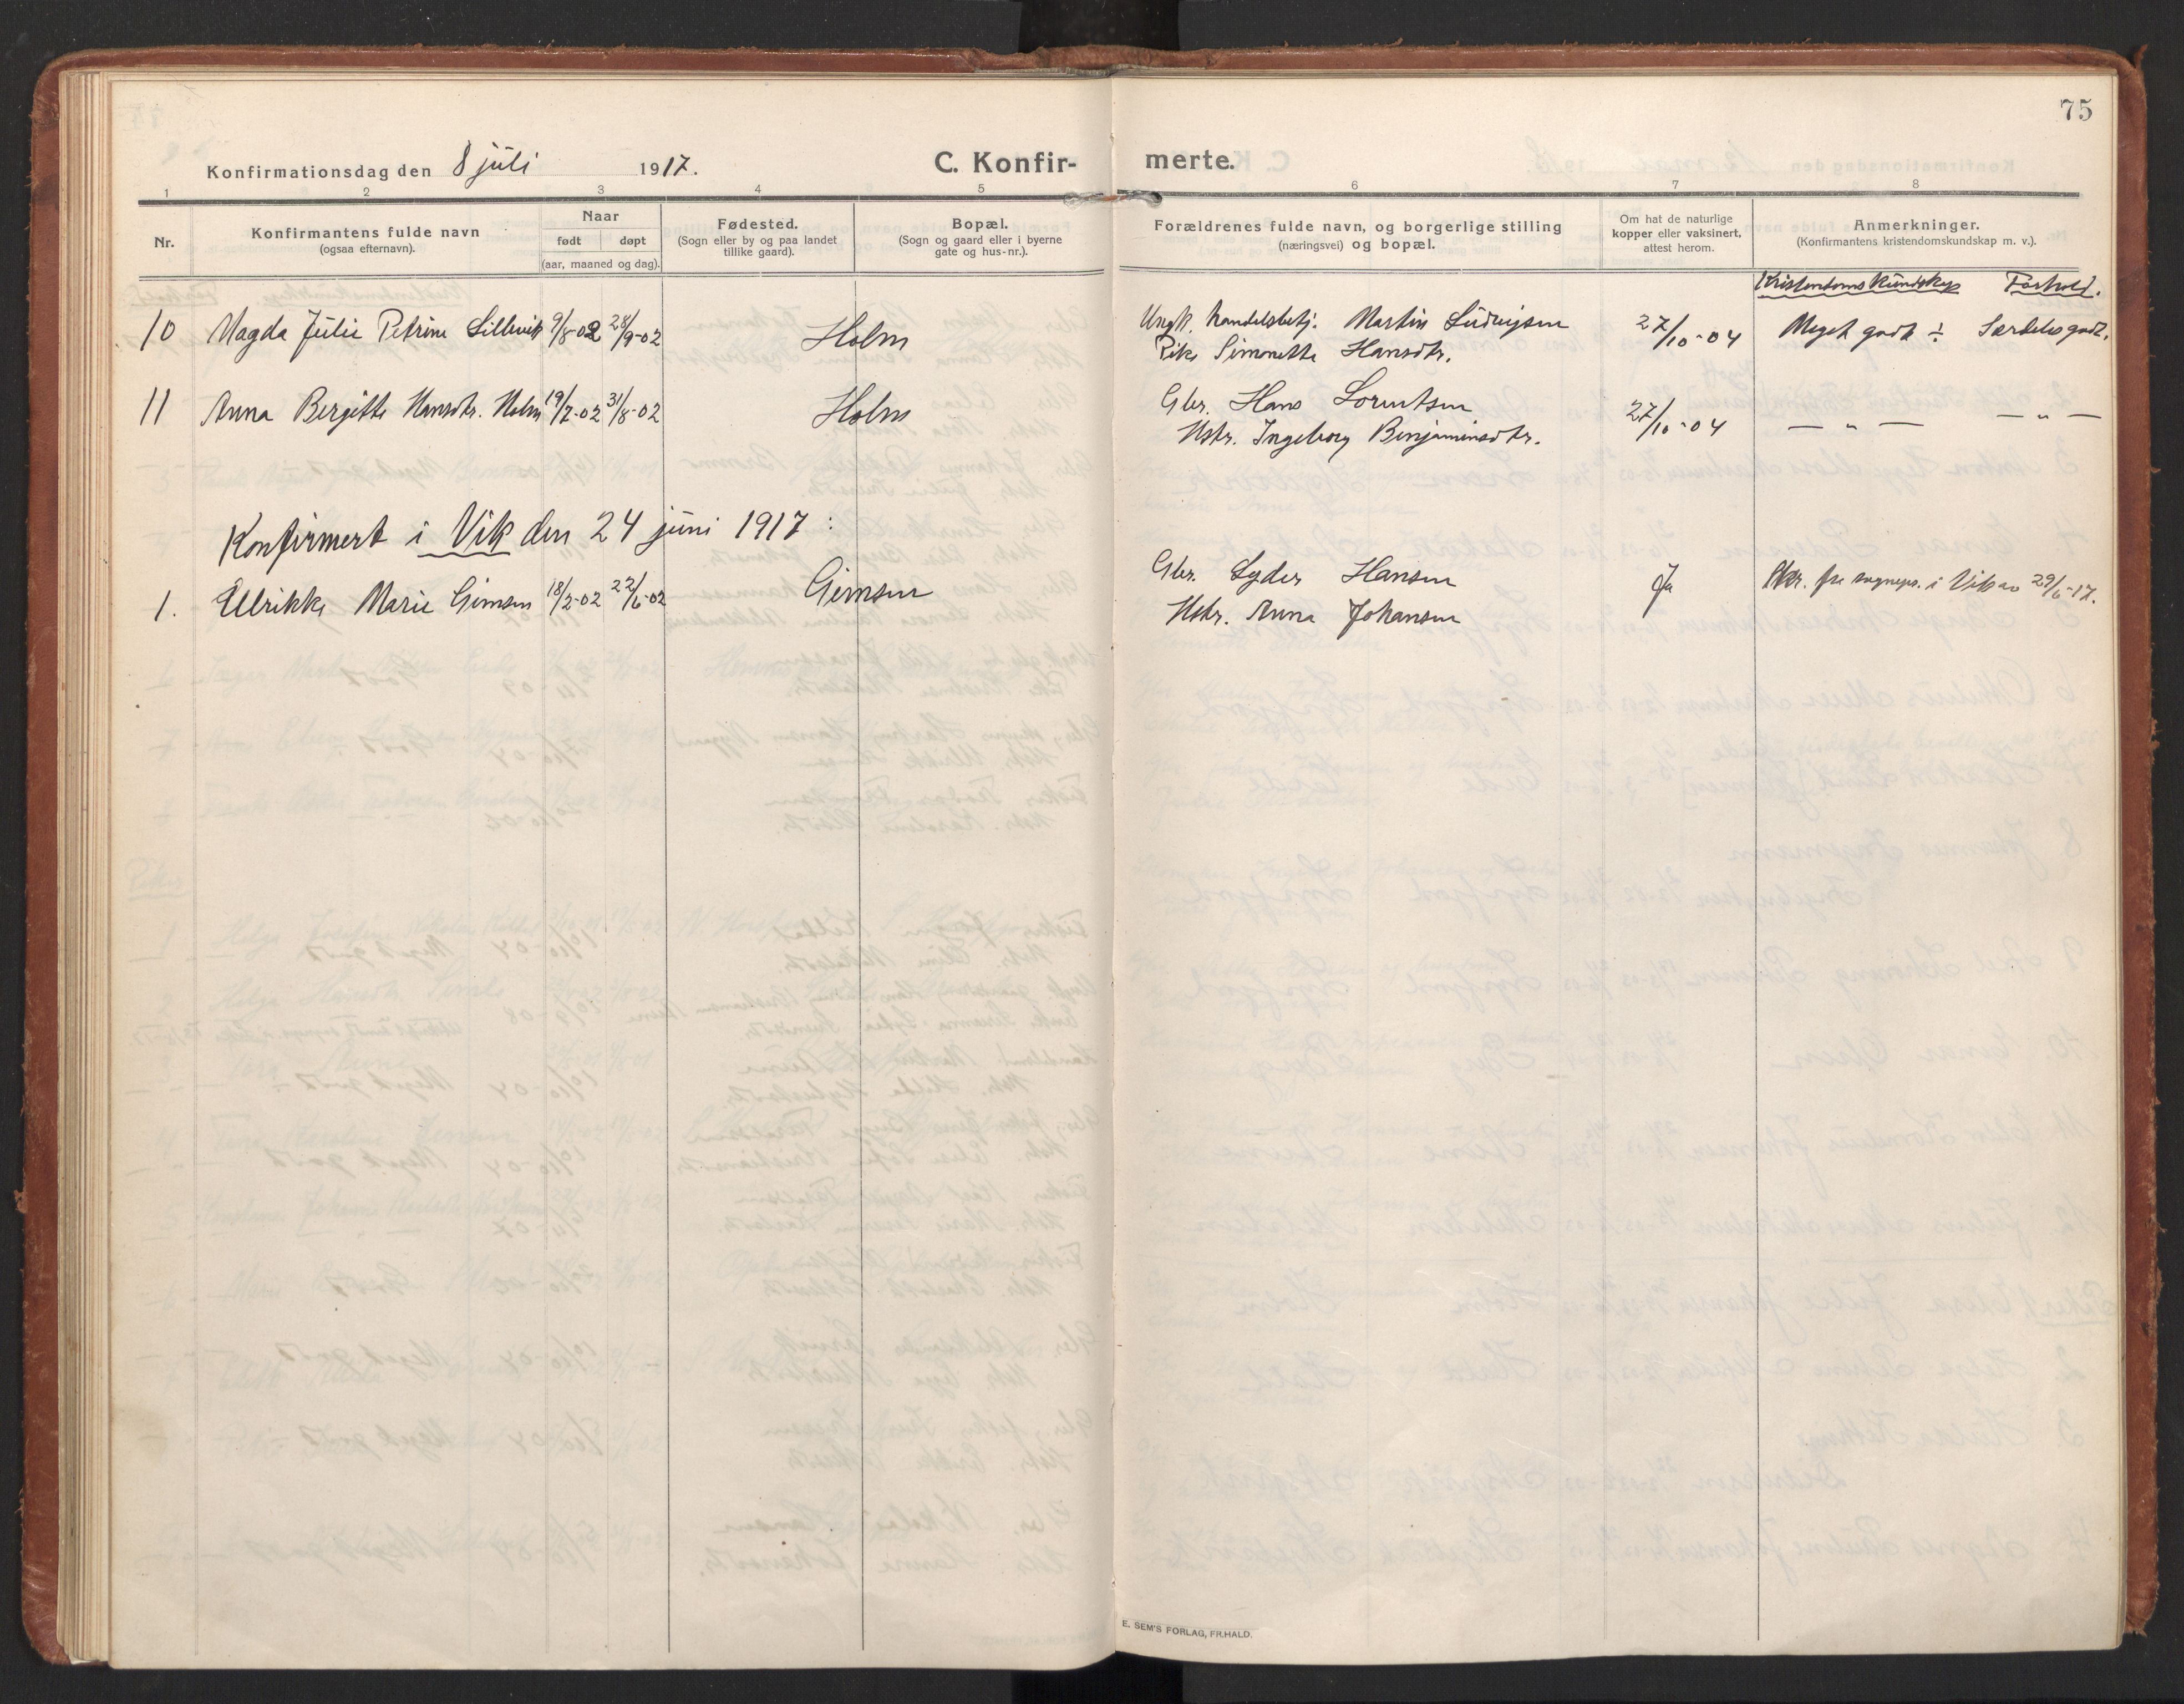 75
Konfirmationsdag den 8 juli 1917. C. Konfir- merte.
1 2 3 4 5 6 7 8
Nr. Konfirmantens fulde navn (ogsaa efternavn). Naar født døpt (aar, maaned og dag). Fødested. (Sogn eller by og paa landet tillike gaard). Bopæl. (Sogn og gaard eller i byerne gate og hus-nr.). Forældrenes fulde navn, og borgerlige stilling (næringsvei) og bopæl. Om hat de naturlige kopper eller vaksinert, attest herom. Anmerkninger. (Konfirmantens kristendomskundskap m. v.).
Kristendomskundskap Forhold.
10 Magda Julie Petrine Lillevik 9/8-02 28/9-02 Holm Ungk. handelsbetj. Martin Ludvigsen 27/10-04 Meget godt ÷ Særdeles godt.
Pike Simonette Hansdtr.
11 Anna Bergitte Hansdtr. Holm 19/7-02 31/8-02 Holm Gbr. Hans Lorentsen 27/10-04 — „ — — „ —
Hstr. Ingeborg Benjaminsdtr.
Konfirmert i Vik den 24 juni 1917:
1. Ellrikke Marie Gimsen 18/2-02 22/6-02 Gimsen Gbr. Lyder Hansen Ja fra sognepr. i Vik av 29/6-17.
Hstr. Anna Johansen
E. SEM'S FORLAG, FR.HALD.